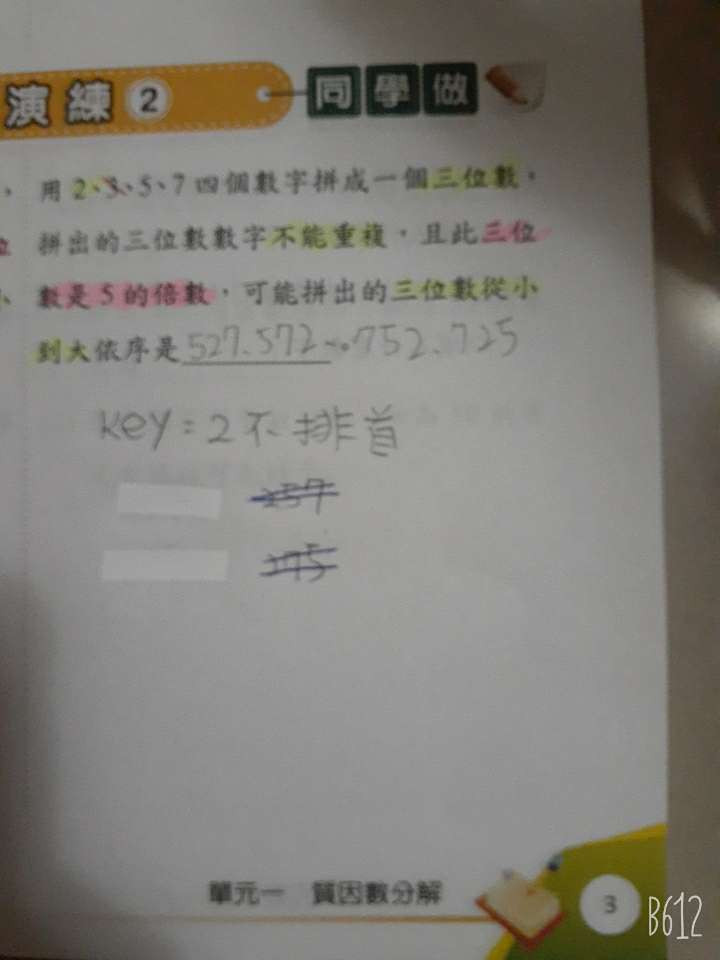 演練 2 同學做
，用 2、3、5、7 四個數字拼成一個三位數，
位 拼出的三位數數字不能重複，且此三位
小 數是 5 的倍數，可能拼出的三位數從小
到大依序是 527、572、752、725
key = 2 不排首
257
275
單元一 質因數分解
3
B612